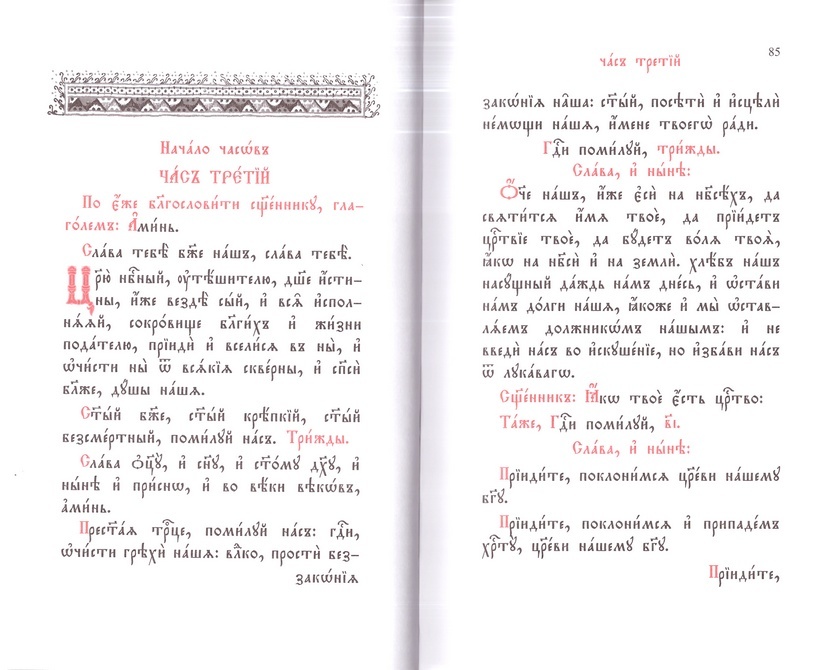 Нача́ло часѡ́въ
ЧА́СЪ ТРЕ́ТЇЙ
По є҆́же бл҃гослови́ти сщ҃е́ннику, гла-
го́лемъ: А҆ми́нь.
Сла́ва тебѣ̀ бж҃е на́шъ, сла́ва тебѣ̀.
Цр҃ю̀ нб҃ный, ᲂу҆тѣ́шителю, дш҃е и҆́сти-
ны, и҆́же вездѣ̀ сы́й, и҆ всѧ̑ и҆сполн-
ѧ́ѧй, сокро́вище бл҃ги́хъ и҆ жи́зни
пода́телю, прїидѝ и҆ всели́сѧ въ ны̀, и҆
ѡ҆чи́сти ны̀ ѿ всѧ́кїѧ скве́рны, и҆ сп҃сѝ
бл҃же, дꙋ́шы на́шѧ.
Ст҃ы́й бж҃е, ст҃ы́й крѣ́пкїй, ст҃ы́й
безсме́ртный, поми́лꙋй на́съ. Три́жды.
Сла́ва ѻ҆ц҃ꙋ̀, и҆ сн҃ꙋ, и҆ ст҃о́мꙋ дх҃ꙋ, и҆
ны́нѣ и҆ при́снѡ, и҆ во вѣ́ки вѣкѡ́въ,
а҆ми́нь.
Прест҃а́ѧ трⷪ҇це, поми́лꙋй на́съ: гдⷭ҇и,
ѡ҆чи́сти грѣхѝ на́шѧ: влⷣко, простѝ без-
закѡ́нїѧ
85
ча́съ тре́тїй
закѡ́нїѧ на̑ша: ст҃ы́й, посѣтѝ и҆ и҆сцѣлѝ
не́мощи на́шѧ, и҆́мене твоегѡ̀ ра́ди.
Гдⷭ҇и поми́лꙋй, три́жды.
Сла́ва, и҆ ны́нѣ:
Ѻ҆́ч҃е на́шъ, и҆́же є҆сѝ на нб҃сѣ́хъ, да
свѧти́тсѧ и҆́мѧ твоѐ, да прїи́детъ
црⷭ҇твїе твоѐ, да бꙋ́детъ во́лѧ твоѧ̀,
ꙗ҆́кѡ на нб҃сѝ и҆ на землѝ. хлѣ́бъ на́шъ
насꙋ́щный да́ждь на́мъ дне́сь, и҆ ѡ҆ста́ви
на́мъ до́лги на́шѧ, ꙗ҆́коже и҆ мы̀ ѡ҆став-
лѧ́емъ должникѡ́мъ на́шымъ: и҆ не
введѝ на́съ во и҆скꙋше́нїе, но и҆зба́ви на́съ
ѿ лꙋка́вагѡ.
Сщ҃е́нникъ: Ꙗ҆́кѡ твоѐ є҆́сть црⷭ҇тво:
Та́же, Гдⷭ҇и поми́лꙋй, в҃і.
Сла́ва, и҆ ны́нѣ:
Прїиди́те, поклони́мсѧ цр҃е́ви на́шемꙋ
бг҃ꙋ.
Прїиди́те, поклони́мсѧ и҆ припаде́мъ
хрⷭ҇тꙋ̀, цр҃е́ви на́шемꙋ бг҃ꙋ.
Прїиди́те,